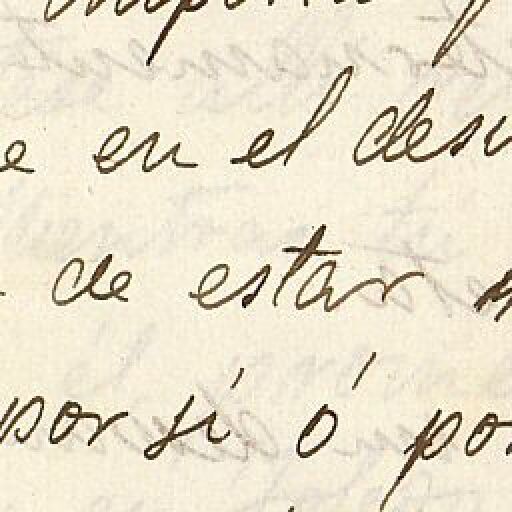 e en el des
de estar
por sí ó po